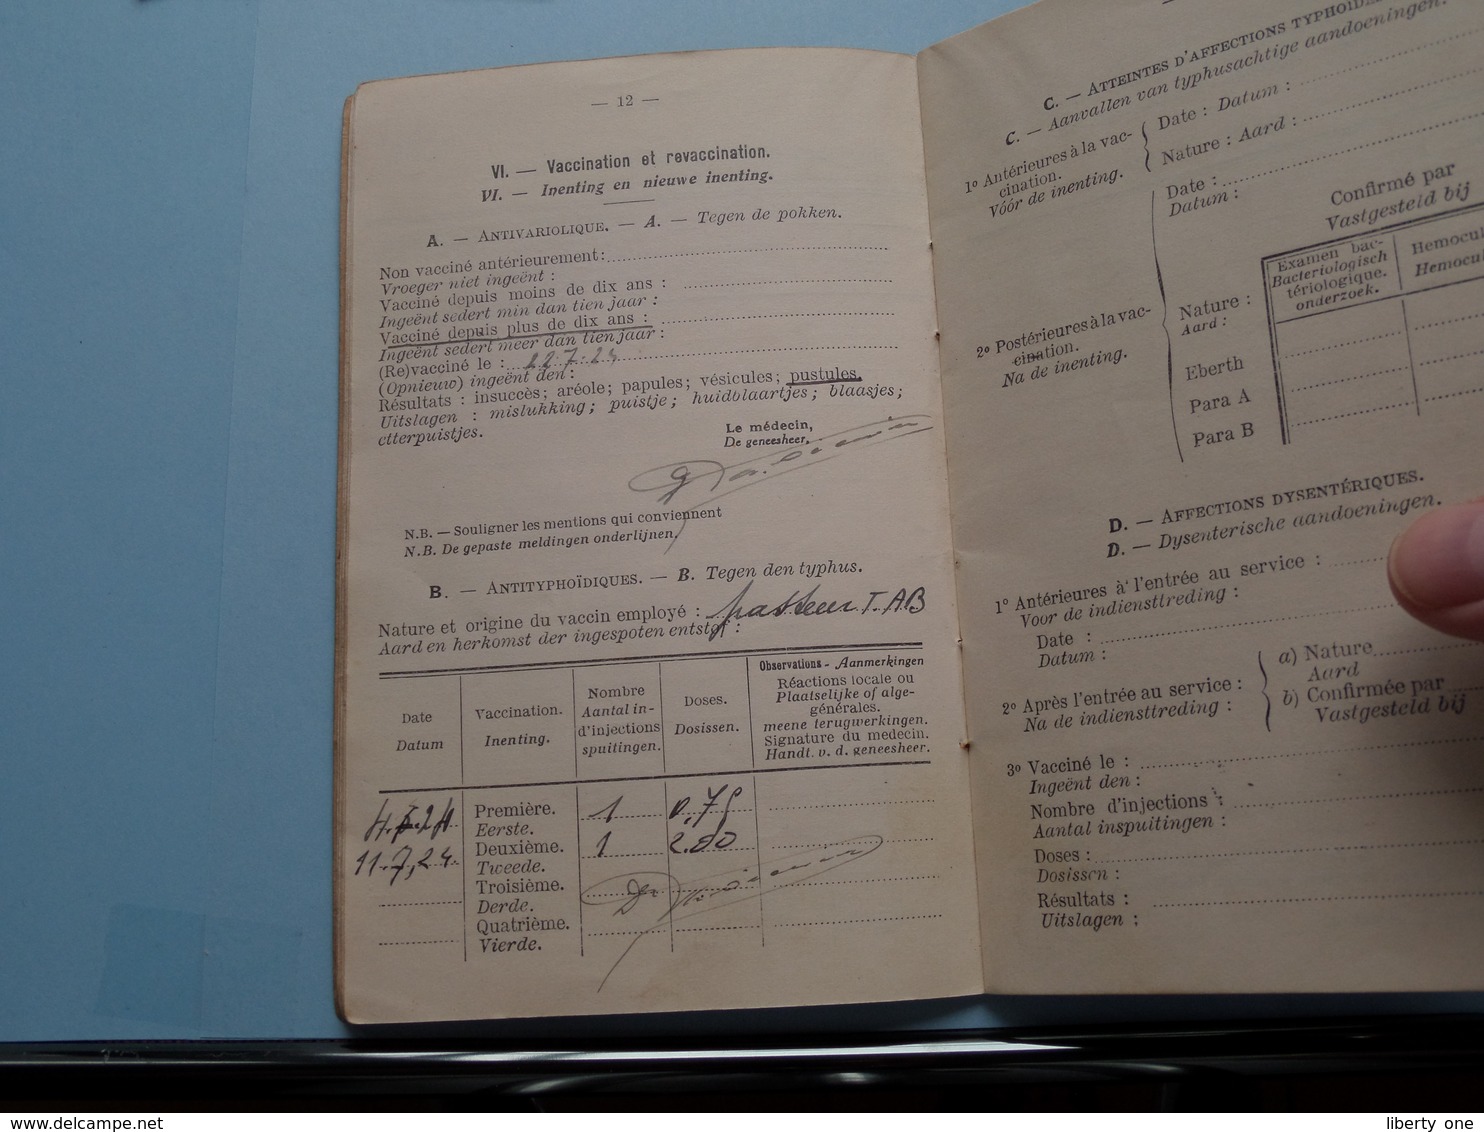 — 12 —
VI. — Vaccination et revaccination.
VI. — Inenting en nieuwe inenting.
A. — ANTIVARIOLIQUE. — A. — Tegen de pokken.
Non vacciné antérieurement:
Vroeger niet ingeënt :
Vacciné depuis moins de dix ans :
Ingeënt sedert min dan tien jaar :
Vacciné depuis plus de dix ans :
Ingeënt sedert meer dan tien jaar :
(Re)vacciné le : 22.7.24
(Opnieuw) ingeënt den :
Résultats : insuccès; aréole; papules; vésicules; pustules.
Uitslagen : mislukking; puistje; huidblaartjes; blaasjes;
etterpuistjes.
Le médecin,
De geneesheer,
N.B. — Souligner les mentions qui conviennent
N.B. De gepaste meldingen onderlijnen.
B. — ANTITYPHOÏDIQUES. — B. Tegen den typhus.
Nature et origine du vaccin employé : Pasteur T.AB
Aard en herkomst der ingespoten entstof :
Date
Datum
Vaccination.
Inenting.
Nombre
Aantal in-
d'injections
spuitingen.
Doses.
Dosissen.
Observations - Aanmerkingen
Réactions locale ou
Plaatselijke of alge-
générales.
meene terugwerkingen.
Signature du medecin.
Handt. v. d. geneesheer.
4.7.24 Première. 1 0.75
Eerste.
11.7.24. Deuxième. 1 2.00
Tweede.
Troisième.
Derde.
Quatrième.
Vierde.
C. — ATTEINTES D'AFFECTIONS
C. — Aanvallen van typhusachtige aandoeningen.
1º Antérieures à la vac-
cination.
Vóór de inenting.
Date : Datum :
Nature : Aard :
2º Postérieures à la vac-
cination.
Na de inenting.
Date :
Datum :
Confirmé par
Vastgesteld bij
Examen bac-
Bacteriologisch
tériologique.
onderzoek.
Hemocul
Hemocul
Nature :
Aard :
Eberth
Para A
Para B
D. — AFFECTIONS DYSENTÉRIQUES.
D. — Dysenterische aandoeningen.
1º Antérieures à l'entrée au service :
Voor de indiensttreding :
Date :
Datum :
2º Après l'entrée au service :
Na de indiensttreding :
a) Nature
Aard
b) Confirmée par
Vastgesteld bij
3º Vacciné le :
Ingeënt den :
Nombre d'injections :
Aantal inspuitingen :
Doses :
Dosissen :
Résultats :
Uitslagen :
www.delcampe.net
liberty one